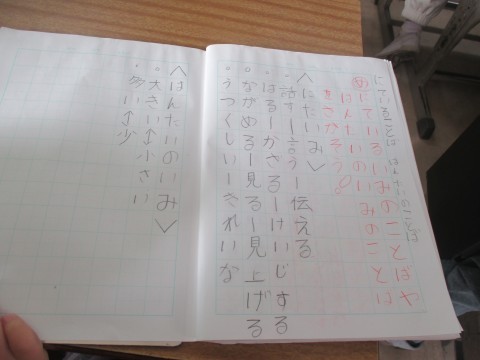 にていることば はんたいのことば
めにているいみのことばや
はんたいのいみのことば
をさがそう。
〈にたいみ〉
・話すー言うー伝える
・はるーかざるーけいじする
・ながめるー見るー見上げる
・うつくしいーきれいな
〈はんたいのいみ〉
・大きい↔小さい
・多い↔少